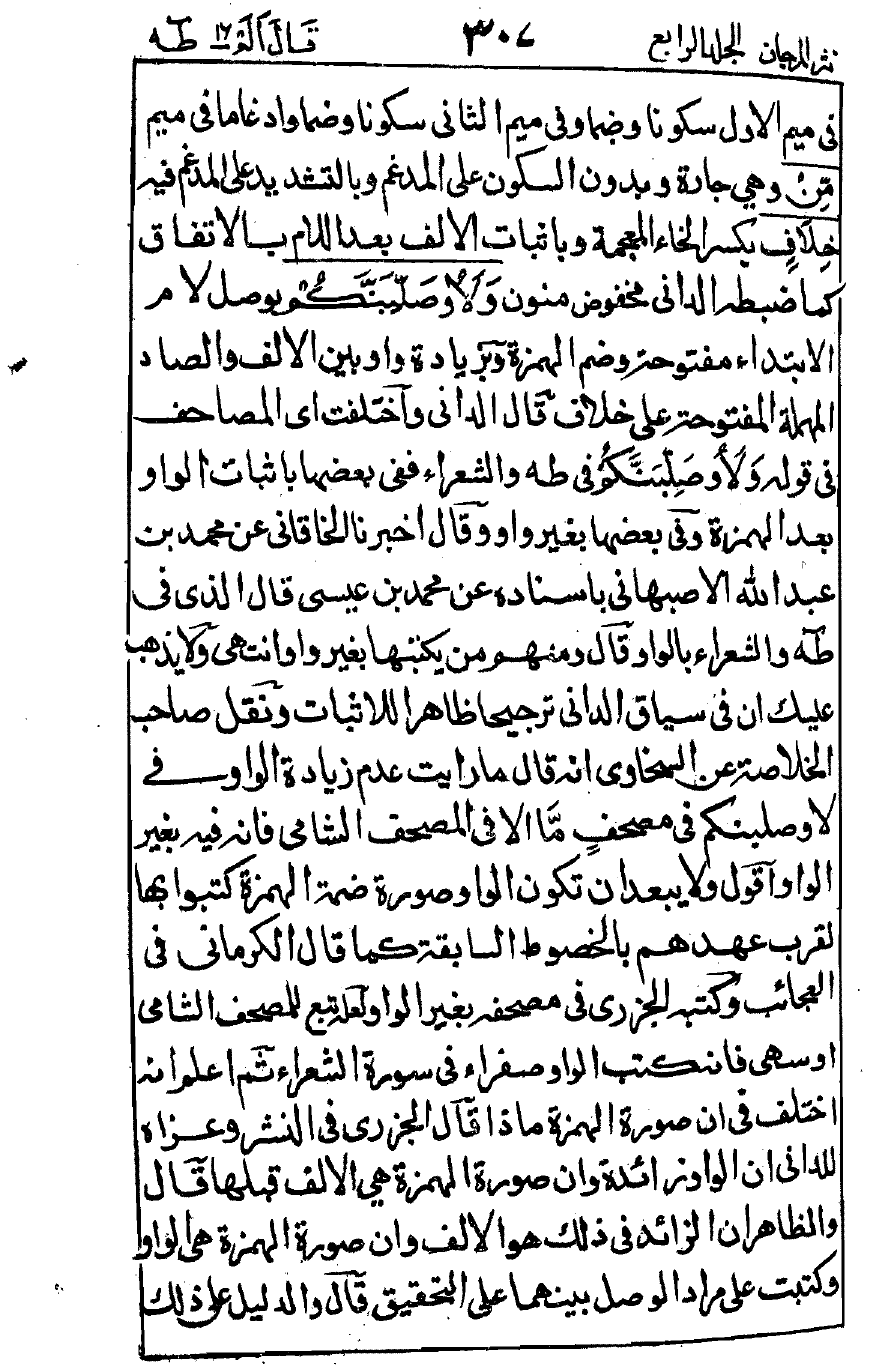 نثر المرجان الجلد الرابع ٣٠٧ قال الم ١٦ طه
فى ميم الاول سكونا وضما وفى ميم الثانى سكونا وضما وادغاما فى ميم
مِّنْ وهي جارة وبدون السكون على المدغم وبالتشديد على المدغم فيه
خِلَافٍ بكسر الخاء المعجمة وباثبات الالف بعد اللام بالاتفاق
كما ضبطه الدانى مخفوض منون وَلَأُوصَلِّبَنَّكُمْ بوصل لام
الابتداء مفتوحة وضم الهمزة وبزيادة واو بين الالف والصاد
المهملة المفتوحة على خلاف قال الدانى واختلفت اى المصاحف
فى قوله وَلَأُوصَلِّبَنَّكُمْ فى طه والشعراء ففى بعضها باثبات الواو
بعد الهمزة وفى بعضها بغير واو وقال اخبرنا الخاقانى عن محمد بن
عبد الله الاصبهانى باسناده عن محمد بن عيسى قال الذى فى
طه والشعراء بالواو قال ومنهم من يكتبها بغير واو انتهى ولا يذهب
عليك ان فى سياق الدانى ترجيحا ظاهرا للاثبات ونقل صاحب
الخلاصة عن السخاوى انه قال ما رايت عدم زيادة الواو فے
لاوصلبنكم فى مصحفٍ مَّا الا فى المصحف الشامى فانه فيه بغير
الواو اقول ولا يبعد ان تكون الواو صورة ضمة الهمزة كتبوا بها
لقرب عهدهم بالخطوط السابقة كما قال الكرمانى فى
العجائب وكتبه الجزرى فى مصحفه بغير الواو لعله تبع للمصحف الشامى
او سهى فانه كتب الواو صفراء فى سورة الشعراء ثم اعلم انه
اختلف فى ان صورة الهمزة ماذا قال الجزرى فى النشر وعزاه
للدانى ان الواو زائدة وان صورة الهمزة هي الالف قبلها قال
والظاهر ان الزائد فى ذلك هو الالف وان صورة الهمزة هى الواو
وكتبت على مراد الوصل بينهما على التحقيق قال والدليل على ذلك